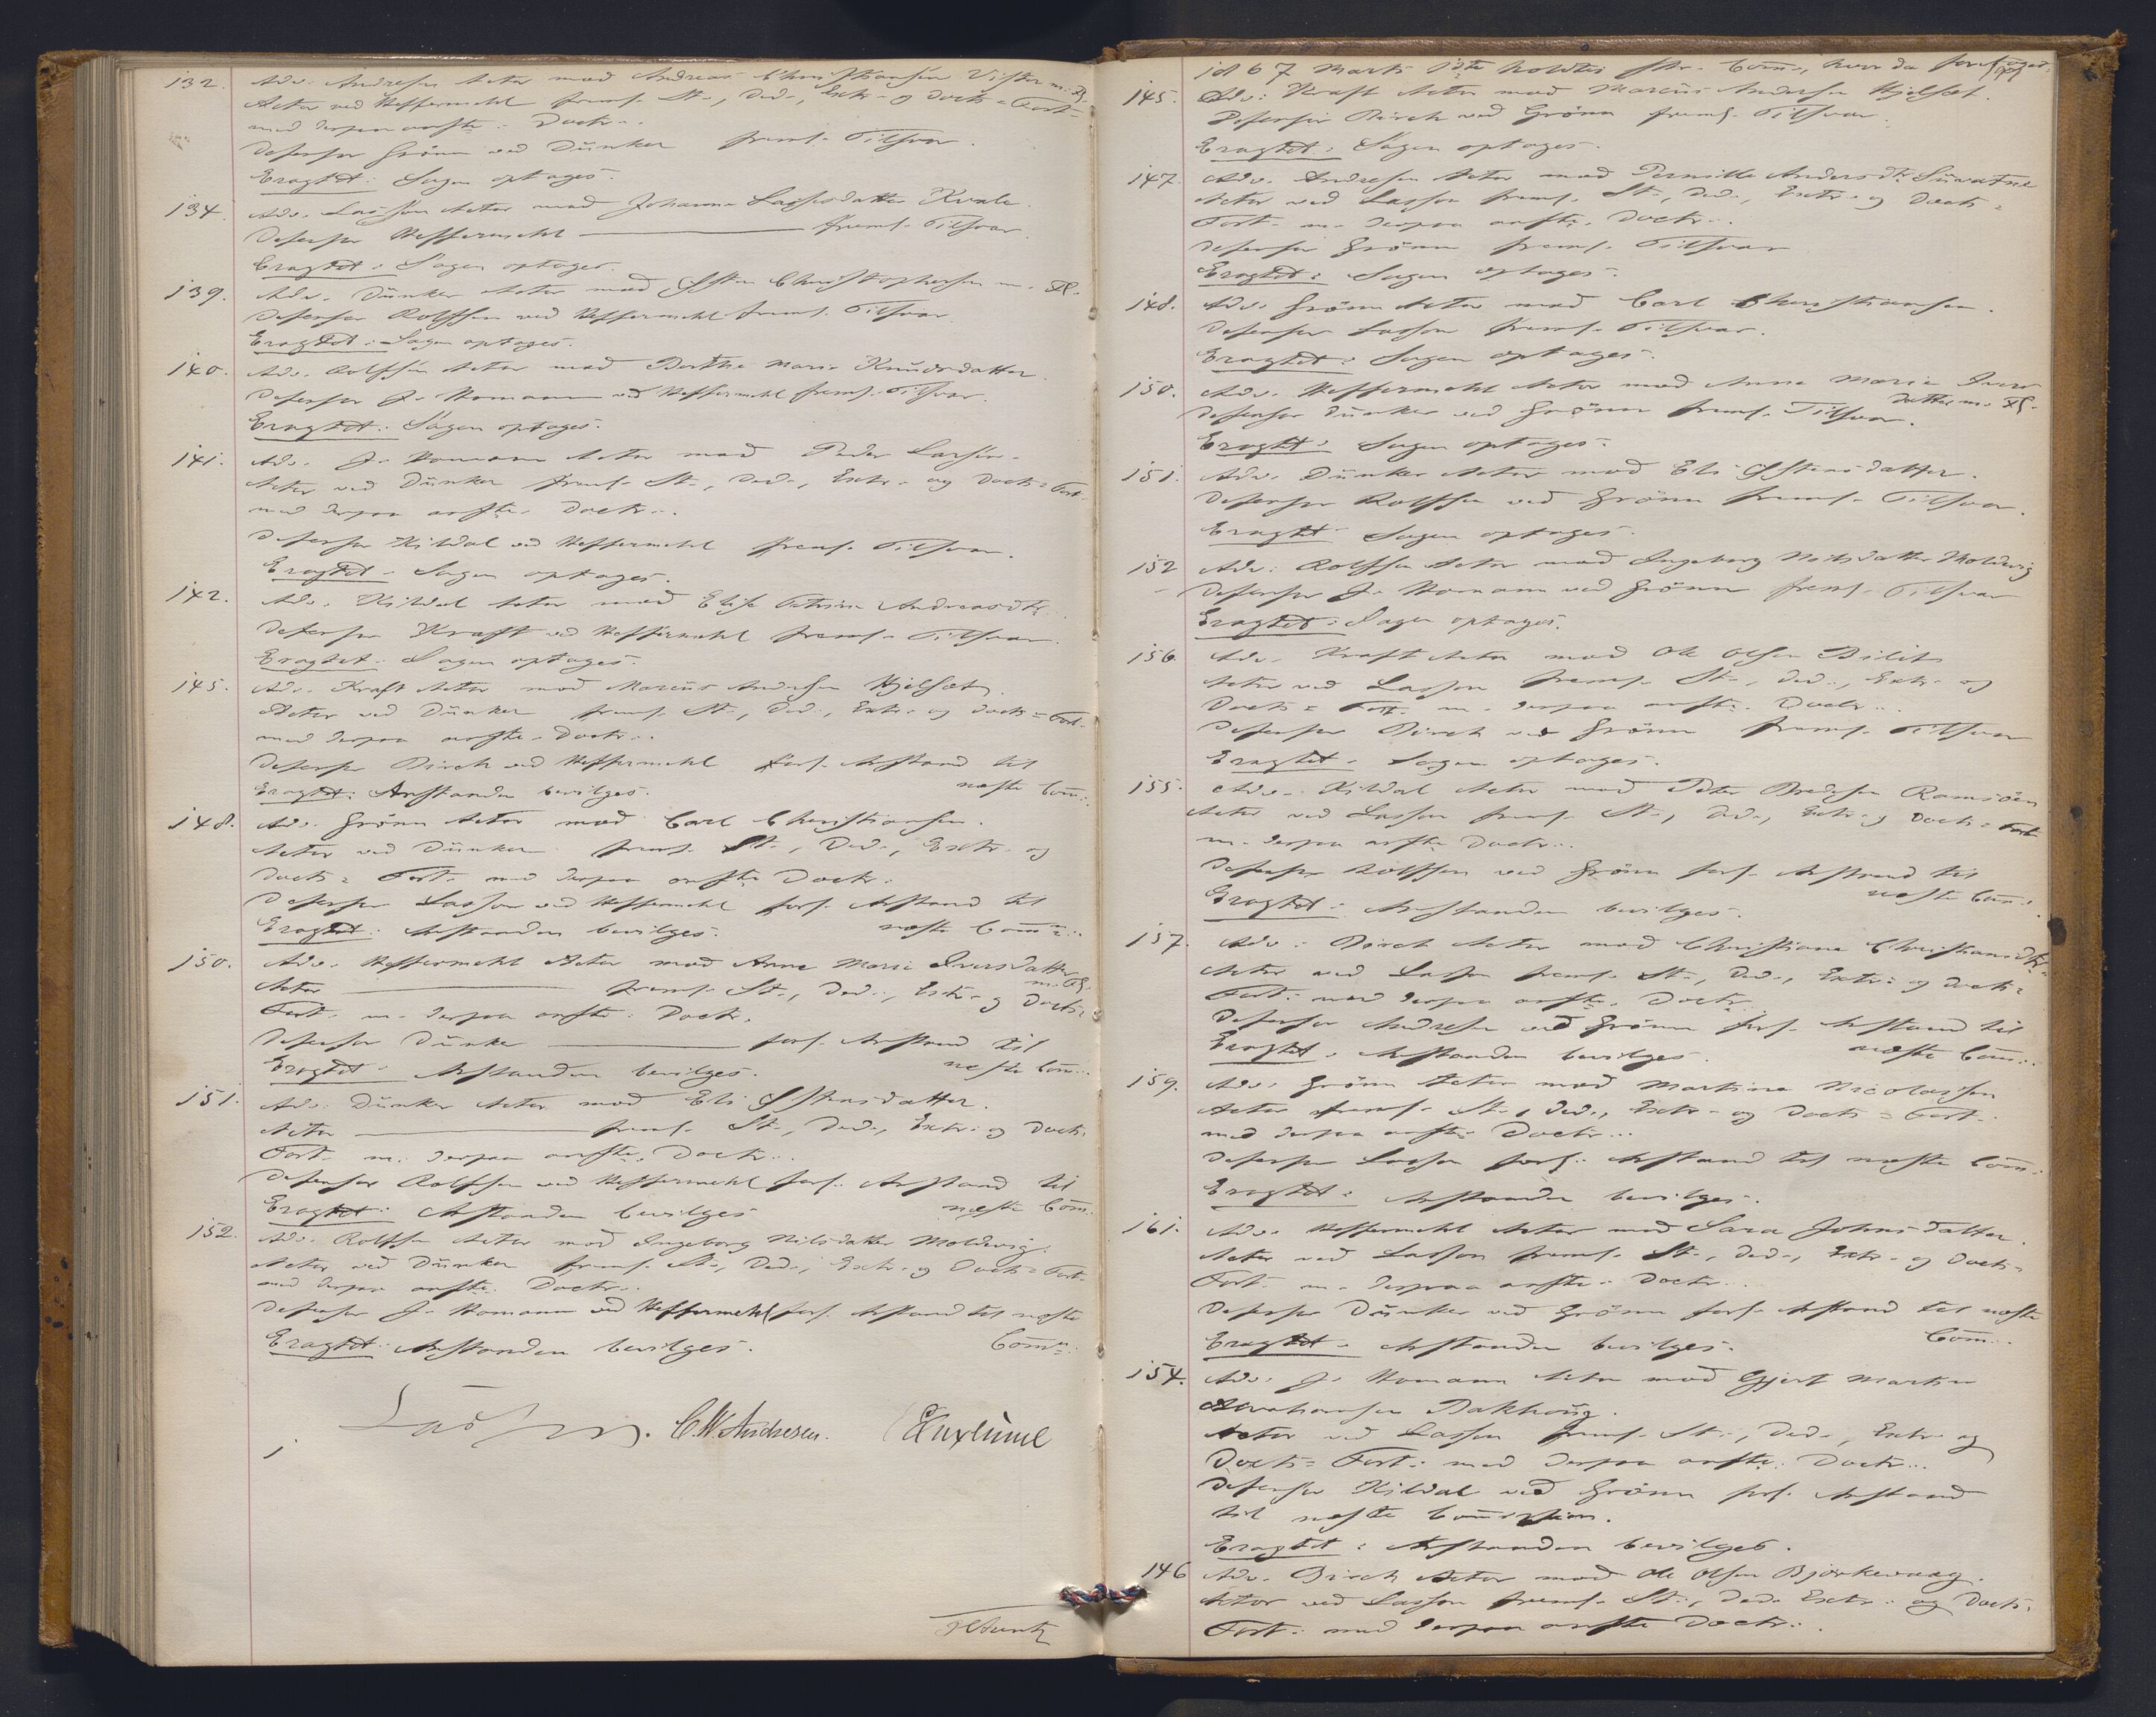 132. Adv. Andresen Actor mod Andreas Christiansen Vister m. Fl.
Actor ved Heffermehl frems. St., Ded., Extr. og Docts = Fort
med derpaa anfte. Doctr..
Defensor Grönn ved Dünker frems. Tilsvar.
Eragtet: Sagen optages.
134. Adv. Lasson Actor mod Johanne Larsdatter Kvale.
Defensor Heffermehl frems. Tilsvar.
Eragtet: Sagen optages.
139. Adv. Dünker Actor mod Christophersen m. Fl.
Defensor Rolfsen ved Heffermehl frems. Tilsvar.
Eragtet: Sagen optages.
140. Adv. Rolfsen Actor mod Berthe Marie Knudsdatter.
Defensor J. Homann ved Heffermehl frems. Tilsvar.
Eragtet: Sagen optages.
141. Adv. J. Homann Actor mod Peder Larsen.
Actor ved Dünker frems. St., Ded., Extr. og Docts = Fort.
med derpaa anfte. Doctr..
Defensor Kildal ved Heffermehl frems. Tilsvar.
Eragtet: Sagen optages.
142. Adv. Kildal Actor mod Elise Andreasdtr.
Defensor Kraft ved Heffermehl frems. Tilsvar.
Eragtet: Sagen optages.
145. Adv. Kraft Actor mod Marcus Andersen Hjelset.
Actor ved Dünker frems. St., Ded., Extr. og Docts = Fort.
med derpaa anfte. Doctr..
Defensor Birch ved Heffermehl fors. Anstand til
næste Com..
Eragtet: Anstanden bevilges.
148. Adv. Grönn Actor mod Carl Christiansen.
Actor ved Dünker frems. St., Ded., Extr. og
Docts = Fort. med derpaa anfte Doctr.
Defensor Lasson ved Heffermehl fors. Anstand til
næste Com..
Eragtet: Anstanden bevilges.
150. Adv. Heffermehl Actor mod Anne Marie Iversdatter
m. Fl.
Actor frems. St., Ded., Extr. og Docts =
Fort. m. derpaa anfte. Doctr.
Defensor Dünker fors. Anstand til
næste Com..
Eragtet: Anstanden bevilges.
151. Adv. Dünker Actor mod Eli Østensdatter.
Actor frems. St., Ded., Extr. og Docts =
Fort. m. derpaa anfte. Doctr..
Defensor Rolfsen ved Heffermehl fors. Anstand til
næste Com.
Eragtet: Anstanden bevilges
152. Adv. Rolfsen Actor mod Ingeborg Nilsdatter Moldevig.
Actor ved Dünker frems. St., Ded., Extr. og Docts = Fort.
med derpaa anfte. Doctr..
Defensor J. Homann ved Heffermehl fors. Anstand til næste
Com..
Eragtet: Anstanden bevilges.
Lasson. C.W. Andresen.
1867 Marts holdtes Com., hvor da
145. Adv. Kraft Actor mod Marcus Andersen Hjelset.
Defensor Birch ved Grönn frems. Tilsvar.
Eragtet: Sagen optages.
147. Adv. Andresen Actor mod Pernille Andersdtr.
Actor ved Lasson frems. St., Ded., Extr. og Docts =
Fort. m. derpaa anfte. Doctr..
Defensor Grönn frems. Tilsvar
Eragtet: Sagen optages.
148. Adv. Grönn Actor mod Carl Christiansen.
Defensor Lasson frems. Tilsvar.
Eragtet: Sagen optages.
150. Adv. Heffermehl Actor mod Anne Marie Ivers
datter m. Fl.
Defensor Dünker ved Grönn frems. Tilsvar.
Eragtet: Sagen optages.
151. Adv. Dünker Actor mod Eli Østensdatter.
Defensor Rolfsen ved Grönn frems. Tilsvar.
Eragtet: Sagen optages.
152 Adv. Rolfsen Actor mod Ingeborg Nilsdatter Moldevig
Defensor J. Homann ved Grönn frems. Tilsvar
Eragtet: Sagen optages.
156. Adv. Kraft Actor mod Ole Olsen Bilit
Actor ved Lasson frems. St., Ded., Extr. og
Docts = Fort. m. derpaa anfte. Doctr...
Defensor Birch ved Grönn frems. Tilsvar
Eragtet: Sagen optages.
155. Adv. Kildal Actor mod Peter Ramsöen
Actor ved Lasson frems. St., Ded., Extr. og Docts = Fort
m. derpaa anfte Doctr...
Defensor Rolfsen ved Grönn fors. Anstand til
næste Com..
Eragtet: Anstanden bevilges.
157. Adv. Birch Actor mod Christiane Christiansdtr.
Actor ved Lasson frems. St., Ded., Extr. og Docts =
Fort. med derpaa anfte. Doctr.
Defensor Andresen ved Grönn fors. Anstand til
næste Com..
Eragtet: Anstanden bevilges.
159. Adv. Grönn Actor mod Martine Nicolaisen
Actor frems. St., Ded., Extr. og Docts = Fort.
med derpaa anfte Doctr...
Defensor Lasson fors. Anstand til næste Com..
Eragtet: Anstanden bevilges.
161. Adv. Heffermehl Actor mod Sara Johnsdatter.
Actor ved Lasson frems. St., Ded., Extr. og Docts =
Fort. m. derpaa anfte. Doctr..
Defensor Dünker ved Grönn fors. Anstand til næste
Com..
Eragtet: Anstanden bevilges.
154. Adv. J. Homann Actor mod Gjert Martin
Abrahamsen Bakhoug.
Actor ved Lasson frems. St., Ded., Extr. og
Docts = Fort. med derpaa anfte. Doctr...
Defensor Kildal ved Grönn fors. Anstand
til næste Comission.
Eragtet: Anstanden bevilges.
146 Adv. Birch Actor mod Ole Olsen Bjorkevaag.
Actor ved Lasson frems. St., Ded. Extr. og Docts =
Fort. med derpaa anfte Doctr.